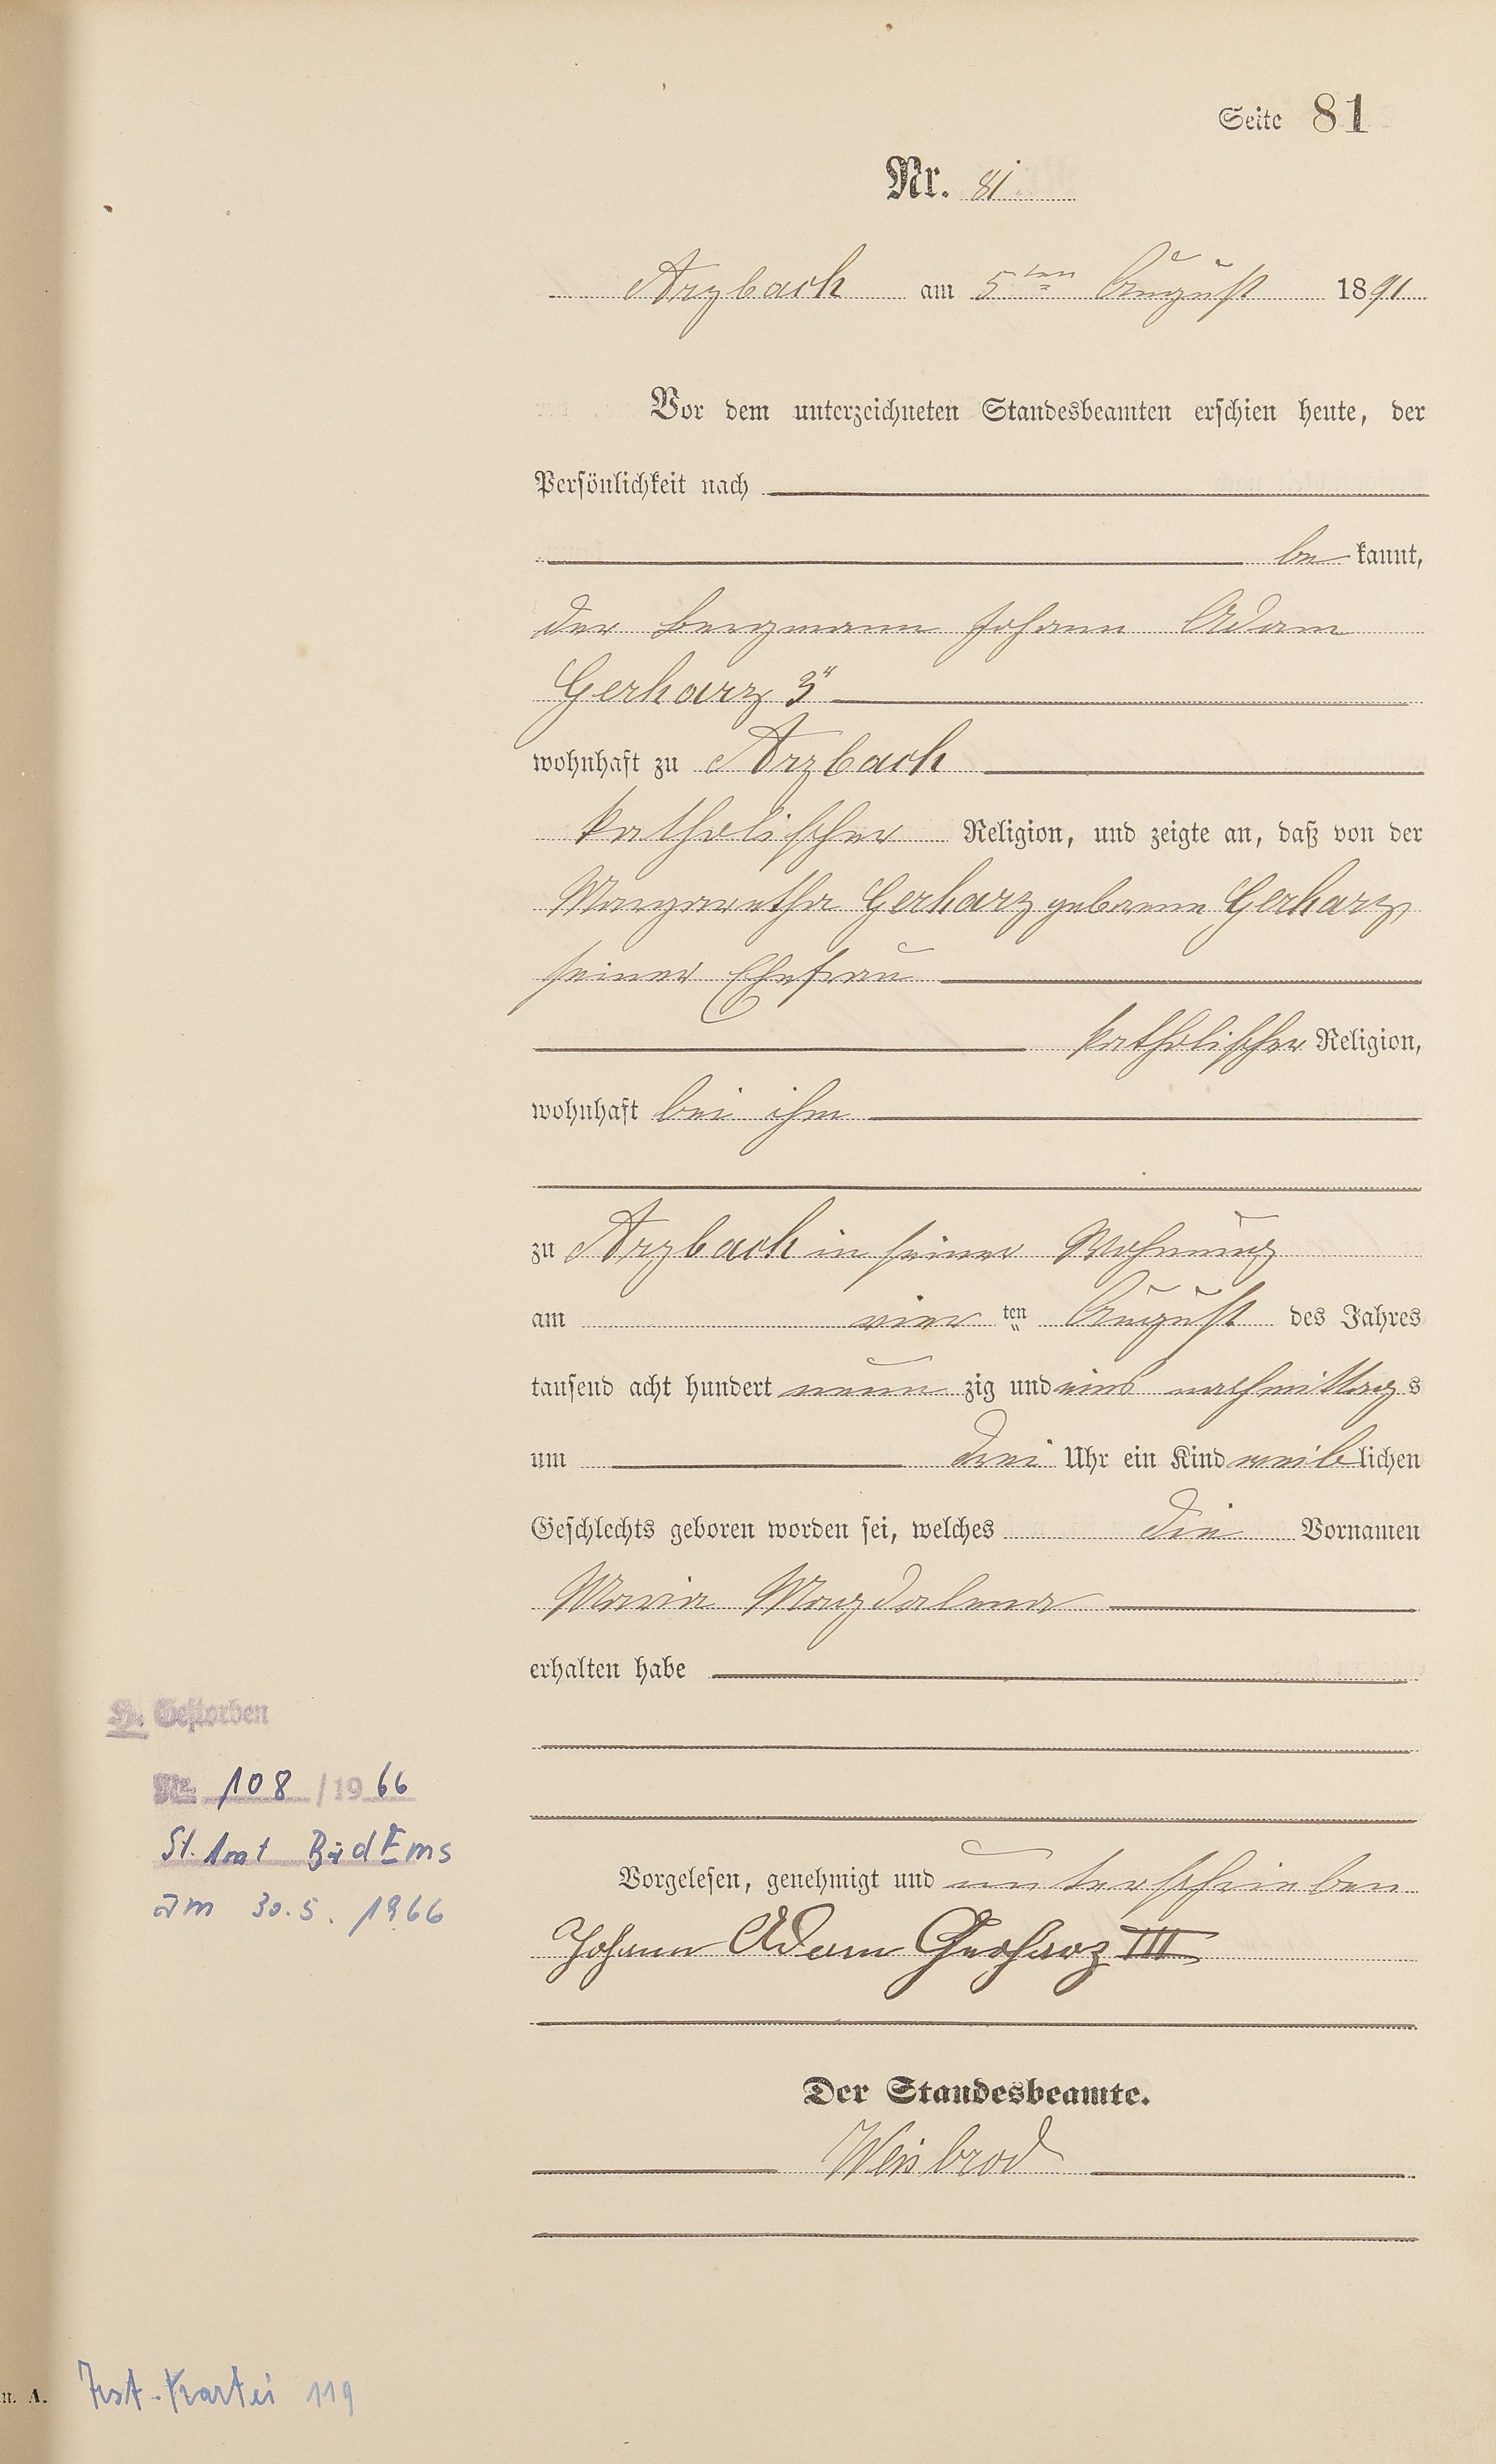 Seite 81
Nr. 81
Arzbach am 5ten August 1891
Vor dem unterzeichneten Standesbeamten erschien heute, der
Persönlichkeit nach
bekannt,
der Bergmann Johann Adam
Gerharz 3"
wohnhaft zu Arzbach
katholischer Religion, und zeigte an, daß von der
Margaretha Gerharz geborene Gerharz,
seiner Ehefrau
katholischer Religion,
wohnhaft bei ihm
zu Arzbach in seiner Wohnung
am vier ten August des Jahres
tausend acht hundert neun zig und eins nachmittags
um drei Uhr ein Kind weiblichen
Geschlechts geboren worden sei, welches die Vornamen
Maria Magdalena
erhalten habe
H. Gestorben
Nr. 108 / 1966
St. Amt Bad Ems
am 30.5. 1966
Vorgelesen, genehmigt und unterschrieben
Johann Adam Gerharz III
Der Standesbeamte.
Weisbrod
n. A.
Test-Kartei 119